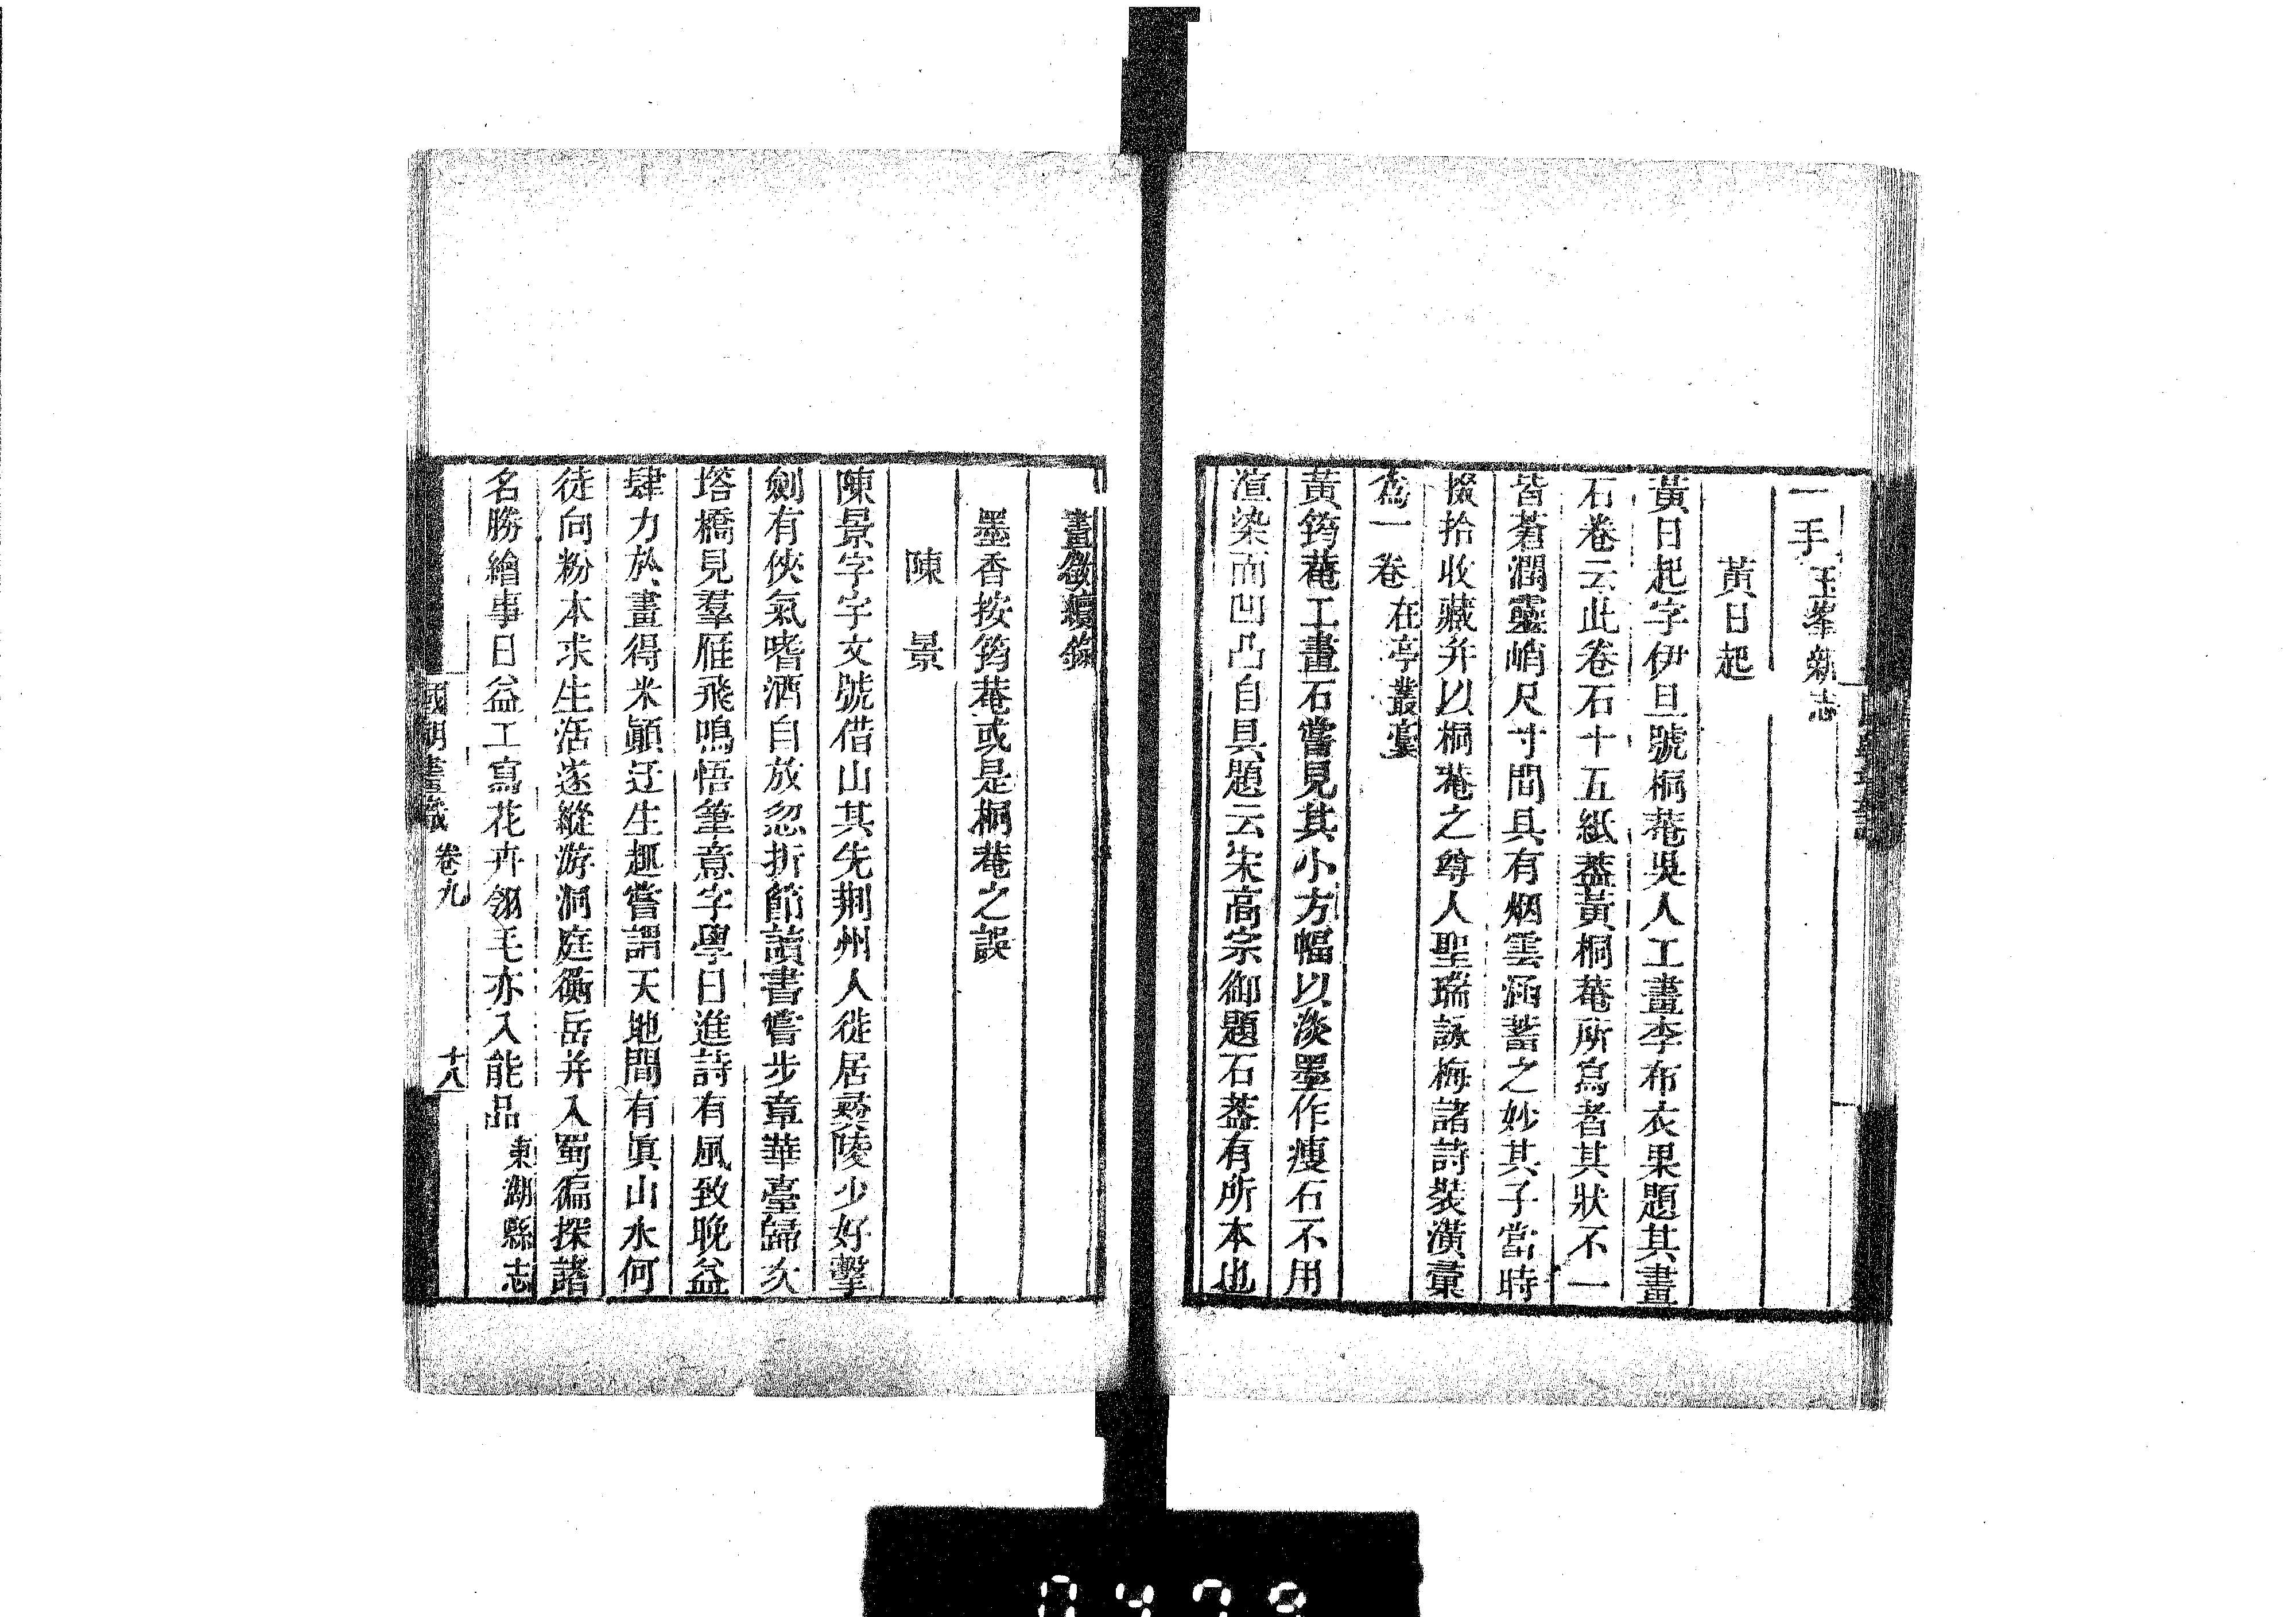 一手玉峯新志
黃日起
黃日起字伊旦號桐菴吳人工畫李布衣果題其畫
石卷云此卷石十五紙葢黃桐菴所寫者其狀不一
皆蒼潤靈峭尺寸間具有烟雲涵蓄之妙其子當時
掇拾收藏并以桐菴之尊人聖瑞詠梅諸詩裝潢彙
爲一卷在亭叢藁
黃筠菴工畫石嘗見其小方幅以淡墨作瘦石不用
渲染而凹凸自具題云宋高宗御題石葢有所本也
畫徵續錄
墨香按筠菴或是桐菴之誤
陳景
陳景字字文號借山其先荆州人徙居彝陵少好擊
劍有俠氣嗜酒自放忽折節讀書嘗步章華臺歸次
塔橋見羣雁飛鳴悟筆意字學日進詩有風致晚益
肆力於畫得米顚迂生趣嘗謂天地間有眞山水何
徒向粉本求生活遂縱游洞庭衡岳并入蜀徧探諸
名勝繪事日益工寫花卉翎毛亦入能品東湖縣志
國朝畫識 卷九 十八
0479